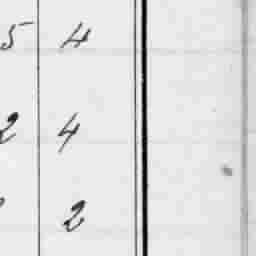 5 4
2 4
2